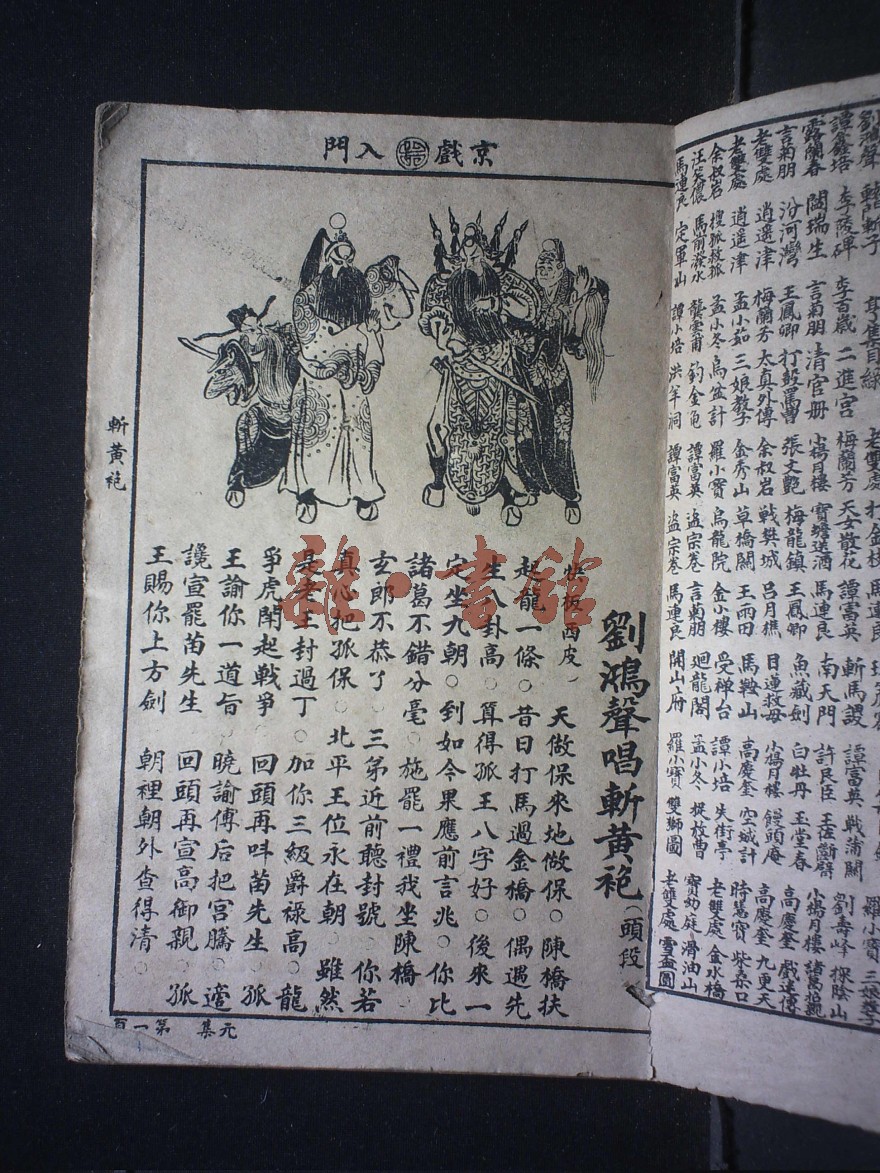 京戲入門
斬黃袍
劉鴻聲唱斬黃袍(頭段)
快板西皮、 天做保來地做保○陳橋扶
起龍一條○昔日打馬過金橋○偶遇先
生八卦高○算得孤王八字好○後來一
定坐九朝○到如今果應前言兆○你比
諸葛不錯分毫○施罷一禮我坐陳橋
玄郎不恭了○三弟近前聽封號○你若
真心把孤保○北平王位永在朝○雖然
是老王封過了○加你三級爵祿高○龍
爭虎鬧起戰爭 回頭再呌苗先生○孤
王諭你一道旨○曉諭傅后把宮騰○適
讒宣罷苗先生 回頭再宣高御親○孤
王賜你上方劍 朝裡朝外查得清○
元集 第一頁
劉鴻聲 轅門斬子
譚鑫培 李陵碑 李百歲 二進宮 梅蘭芳 天女散花 譚富英 斬馬謖
露蘭春 閻瑞生 言菊朋 清官冊 小楊月樓 寶蟾送酒 馬連良 南天門 許良臣 王佐斷臂
言菊朋 汾河灣 王鳳卿 打鼓罵曹 張文艷 梅龍鎮 王鳳卿 魚藏劍 白牡丹 玉堂春
老雙處 逍遥津 梅蘭芳 太真外傳 余叔岩 戰樊城 呂月樵 目蓮救母 小楊月樓 饅頭庵 高慶奎
老雙處 逍遥津 孟小茹 三娘教子 金秀山 草橋關 王雨田 馬鞍山 高慶奎 空城計 時慧寶 柴桑口
余叔岩 搜孤救孤 孟小冬 烏盆計 羅小寶 烏龍院 金小樓 受禪台 譚小培 失街亭 老雙處 金水橋
汪笑儂 馬前潑水 龔雲甫 釣金龜 譚富英 盗宗卷 言菊朋 廻龍閣 孟小冬 捉放曹 滑油山
馬連良 定軍山 譚小培 洪羊洞 譚富英 盗宗卷 馬連良 開山府 羅小寶 雙獅圖 老雙處 雪盃圓
雜·書館